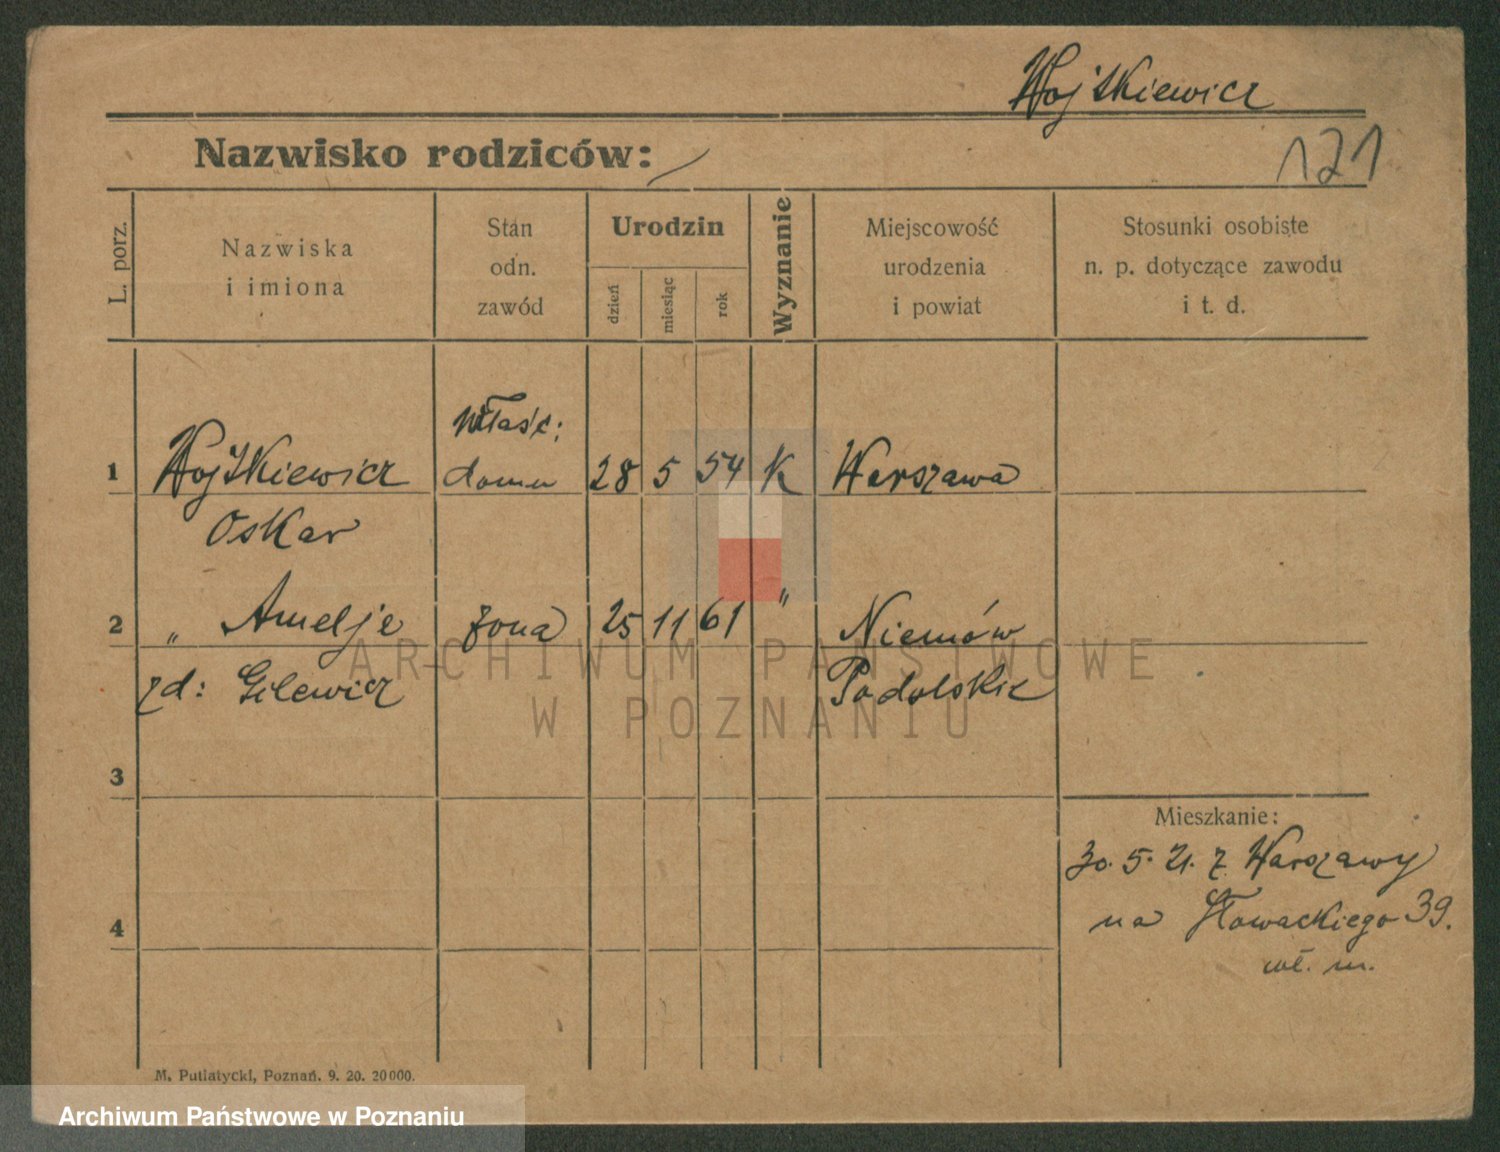 Wojtkiewicz
121
Nazwisko rodziców:
L. porz.
Nazwiska
i imiona
Stan
odn.
zawód
Urodzin
dzień
miesiąc
rok
Wyznanie
Miejscowość
urodzenia
i powiat
Stosunki osobiste
n. p. dotyczące zawodu
i t. d.
1 Wojtkiewicz
Oskar
właśc:
domu
28 5 54 K Warszawa
2 " Amelje żona 25 11 61 "
zd: Gilewicz
Podolskie
3
4
Mieszkanie:
30. 5. 21. z Warszawy
na Słowackiego 39.
wł. m.
M. Putiatycki, Poznań. 9. 20. 20000.
ARCHIWUM PAŃSTWOWE
W POZNANIU
Archiwum Państwowe w Poznaniu